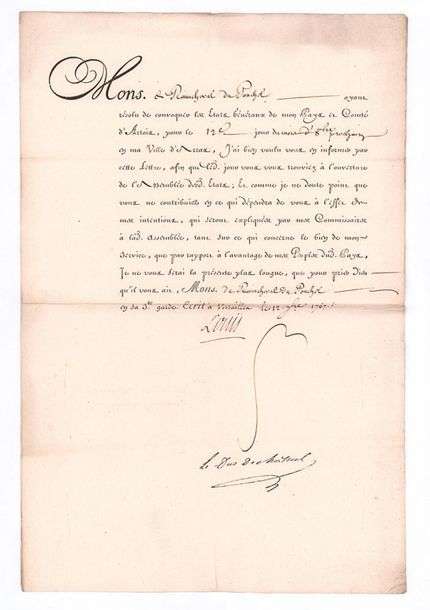 Mons. de ayant
résolu de convoquer les Etats Généraux de mon Pays et Comté
d'Artois, pour le 12e jour du mois d'8bre prochain
en ma Ville d'Arras, J'ai bien voulu vous en informer par
cette Lettre, afin que led. jour vous vous trouviez à l'ouverture
de l'Assemblée desd. Etats; Et comme je ne doute point que
vous ne contribuiez en ce qui dépendra de vous à l'effet de
mes intentions, qui seront expliquées par mes Commissaires
à lad. Assemblée, tant sur ce qui concerne le bien de mon
Service, que par rapport à l'avantage de mes Peuples dud. Pays,
Je ne vous ferai la présente plus longue, que pour prier Dieu
qu'il vous ait, Mons. de
en sa Ste. garde Ecrit à Versailles le 12 1767.
Louis
Le Duc De Choiseul